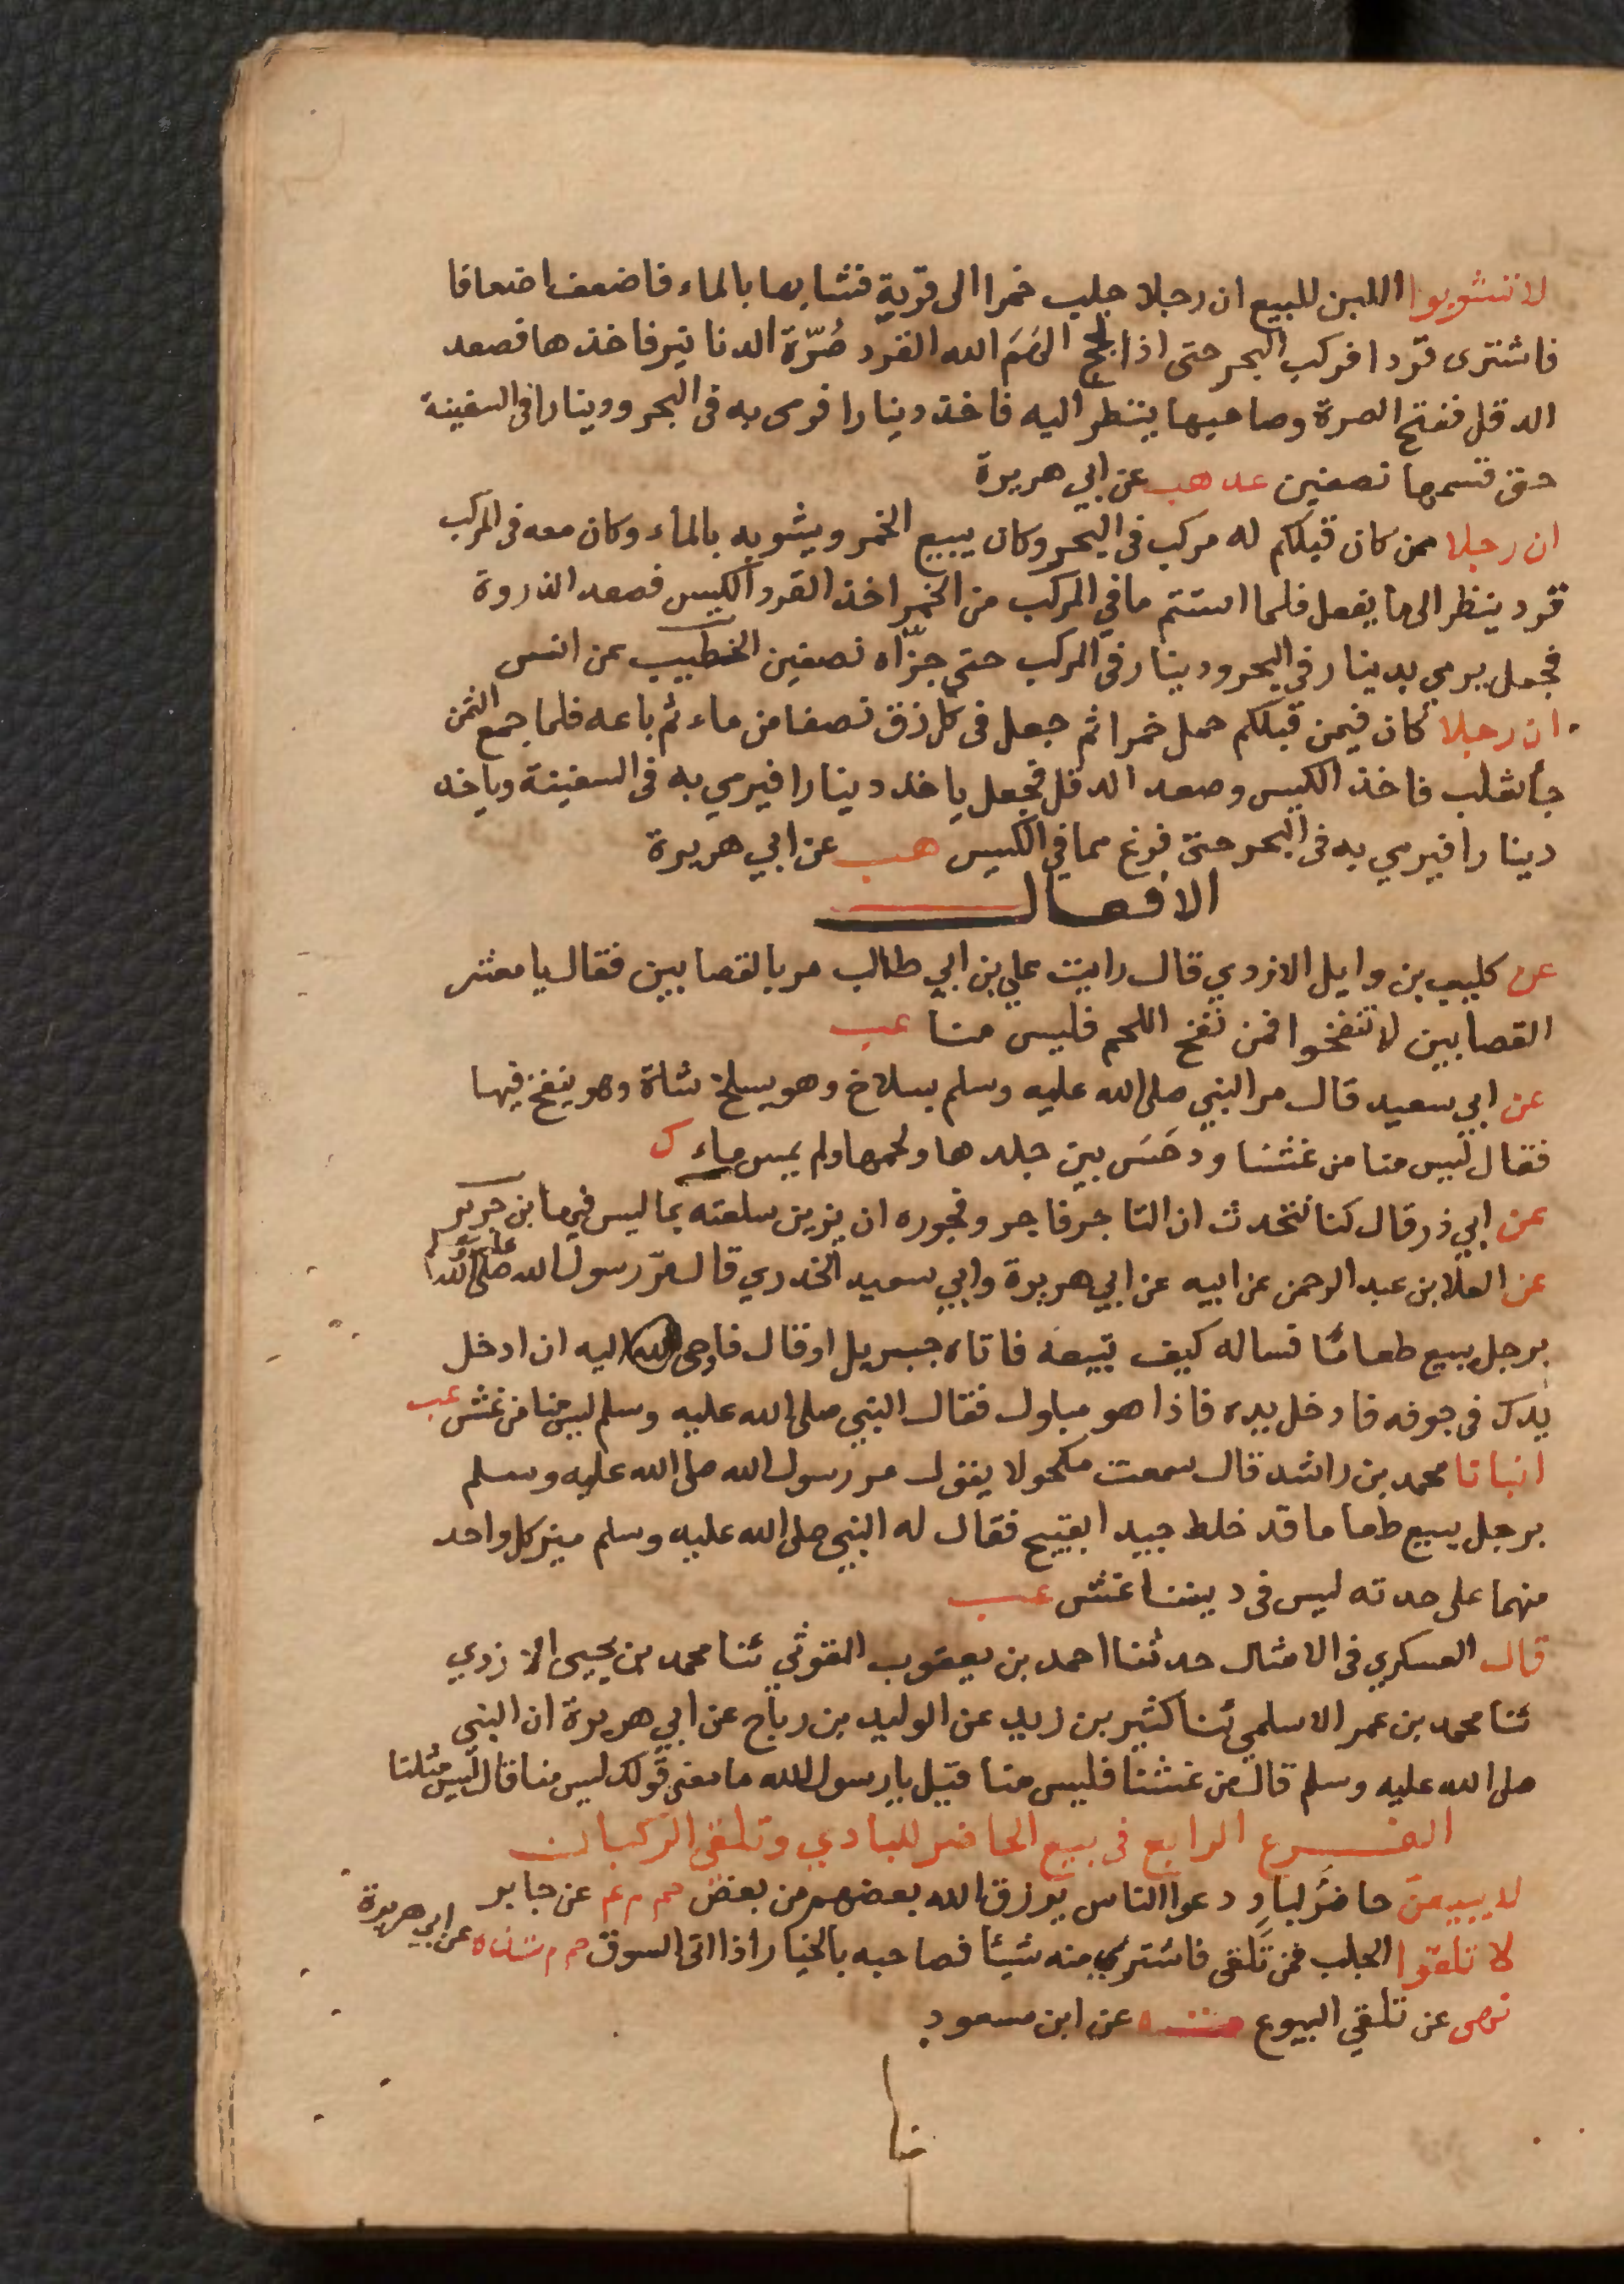 لا تشوبوا اللبن للبيع ان رجلا جلب خمرا الى قرية فشابها بالماء فاضعف اضعافا
فاشترى قردا فركب البحر حتى اذا لجج الهَمَ الله القرد صُرّة الدنانير فاخذها فصعد
الدقل ففتح الصرة وصاحبها ينظر اليه فاخذ دينارا فرمى به فى البحر ودينارا فى السفينة
حتى قسمها نصفين عد هب عن ابي هريرة
ان رجلا ممن كان قبلكم له مركب فى البحر وكان يبيع الخمر ويشوبه بالماء وكان معه فى المركب
قرد ينظر الى ما يفعل فلما استتم ما في المركب من الخمر اخذ القرد الكيس فصعد الذروة
فجعل يرمي بدينار في البحر ودينار في المركب حتى جزّاه نصفين الخطيب عن انس
ان رجلا كان فيمن قبلكم حمل خمرا ثم جعل فى كل زق نصفا من ماء ثم باعه فلما جمع الثمن
جأ ثعلب فاخذ الكيس وصعد الدقل فجعل ياخذ دينارا فيرمي به فى السفينة وياخذ
دينارا فيرمي به فى البحر حتى فرغ مما في الكيس هب عن ابي هريرة
الافعال
عن كليب بن وايل الازدي قال رايت علي بن ابي طالب مر بالقصابين فقال يا معشر
القصابين لا تنفخوا فمن نفخ اللحم فليس منا عب
عن ابي سعيد قال مر النبي صلى الله عليه وسلم بسلاخ وهو يسلخ شاة وهو ينفخ فيها
فقال ليس منا من غشنا ودحَسَ بين جلدها ولحمها ولم يمس ماء ك
عن ابي ذر قال كنا نتحدث ان التاجر فاجر وفجوره ان يزين سلعته بما ليس فيها ابن جرير
عن العلا بن عبد الرحمن عن ابيه عن ابي هريرة وابي سعيد الخدري قال مرّ رسول الله صلى الله عليه وسلم
برجل يبيع طعامًا فساله كيف تبيعه فاتاه جبريل او قال فاوحى الله اليه ان ادخل
يدك فى جوفه فادخل يده فاذا هو مبلول فقال النبي صلى الله عليه وسلم ليس منا من غش عب
انبانا محمد بن راشد قال سمعت مكحولا يقول مر رسول الله صلى الله عليه وسلم
برجل يبيع طعاما قد خلط جيدا بقبيح فقال له النبي صلى الله عليه وسلم ميز كل واحد
منهما على حدته ليس فى ديننا غش عب
قال العسكري فى الامثال حدثنا احمد بن يعقوب المتوثي ثنا محمد بن يحيى الازدي
ثنا محمد بن عمر الاسلمي ثنا كثير بن زيد عن الوليد بن رباح عن ابي هريرة ان النبي
صلى الله عليه وسلم قال من غشنا فليس منا قيل يا رسول الله ما معنى قولك ليس منا قال ليس مثلنا
الفرع الرابع فى بيع الحاضر للبادي وتلقى الركبان
لا يبيعنَّ حاضرٌ لبادٍ دعوا الناس يرزق الله بعضهم من بعض حم م عم عن جابر
لا تلقوا الجلب فمن تَلقى فاشتري منه شيئا فصاحبه بالخيار اذا اتى السوق حم م ت ن ه عن ابي هريرة
نهى عن تلقي البيوع عن ابن مسعود